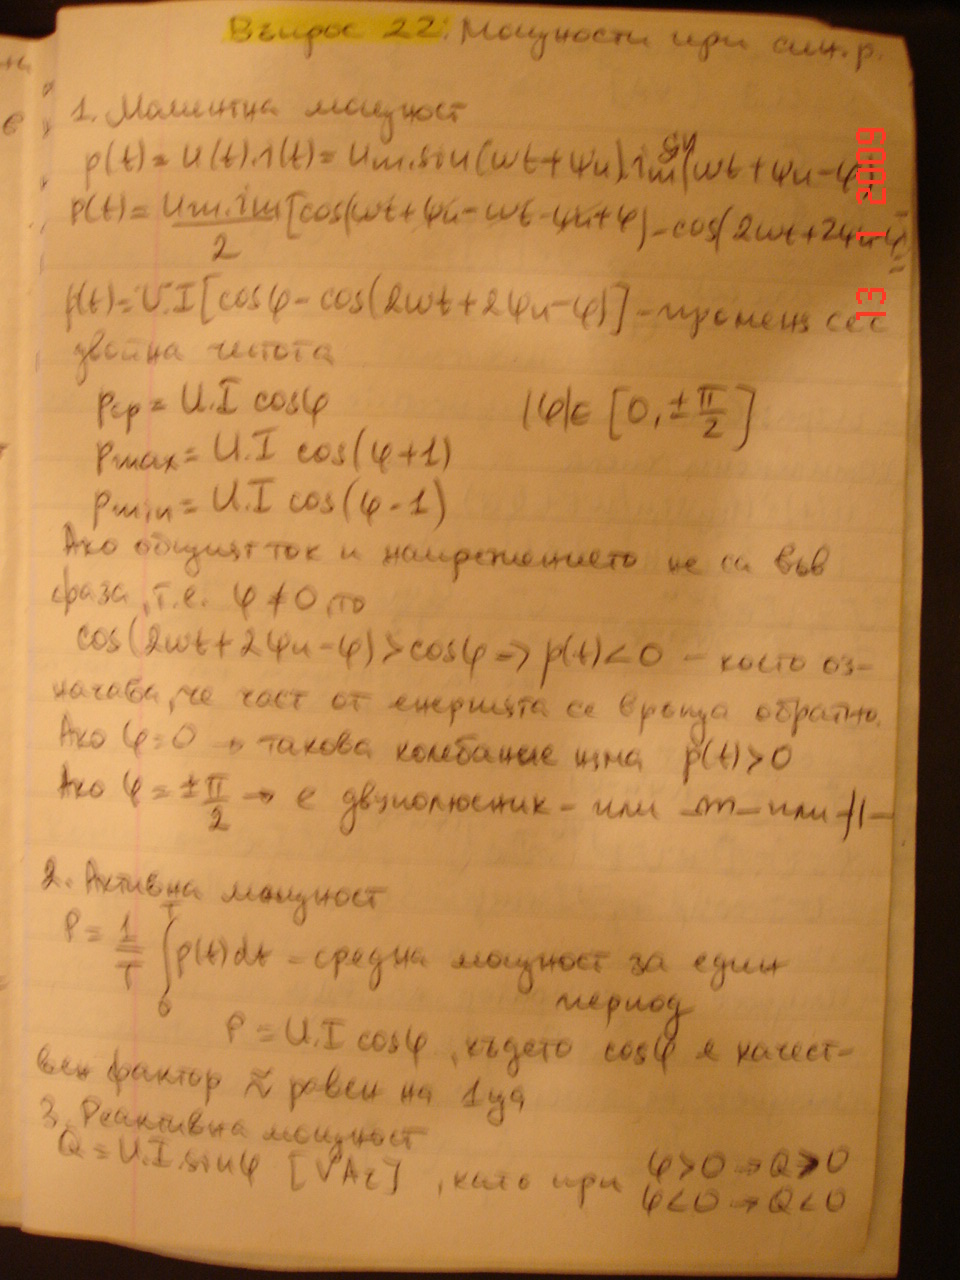 Въпрос 22: Мощности при син. р.
1. Моментна мощност
p(t) = u(t).i(t) = Um.sin(ωt+ψu).im sin(ωt+ψu-φ)
p(t) = Um.im/2 [cos(ωt+ψu-ωt-ψu+φ) - cos(2ωt+2ψu-φ)] =
p(t) = U.I [cosφ - cos(2ωt+2ψu-φ)] - променя се с
двойна честота
pср = U.I cosφ |φ|∈ [0, ±π/2]
pmax = U.I cos(φ+1)
pmin = U.I cos(φ-1)
Ако общият ток и напрежението не са във
фаза, т.е. φ ≠ 0, то
cos(2ωt+2ψu-φ) > cosφ => p(t) < 0 - което оз-
начава, че част от енергията се връща обратно.
Ако φ=0 → такова колебание няма p(t) > 0
Ако φ = ±π/2 → е двуполюсник - или или
2. Активна мощност
P = 1/T ∫₀ᵀ p(t)dt - средна мощност за един
период
P = U.I cosφ, където cosφ е качест-
вен фактор ≈ равен на 1ца
3. Реактивна мощност
Q = U.I.sinφ [VAr], като при φ>0 → Q>0
φ<0 → Q<0
13 1 2009